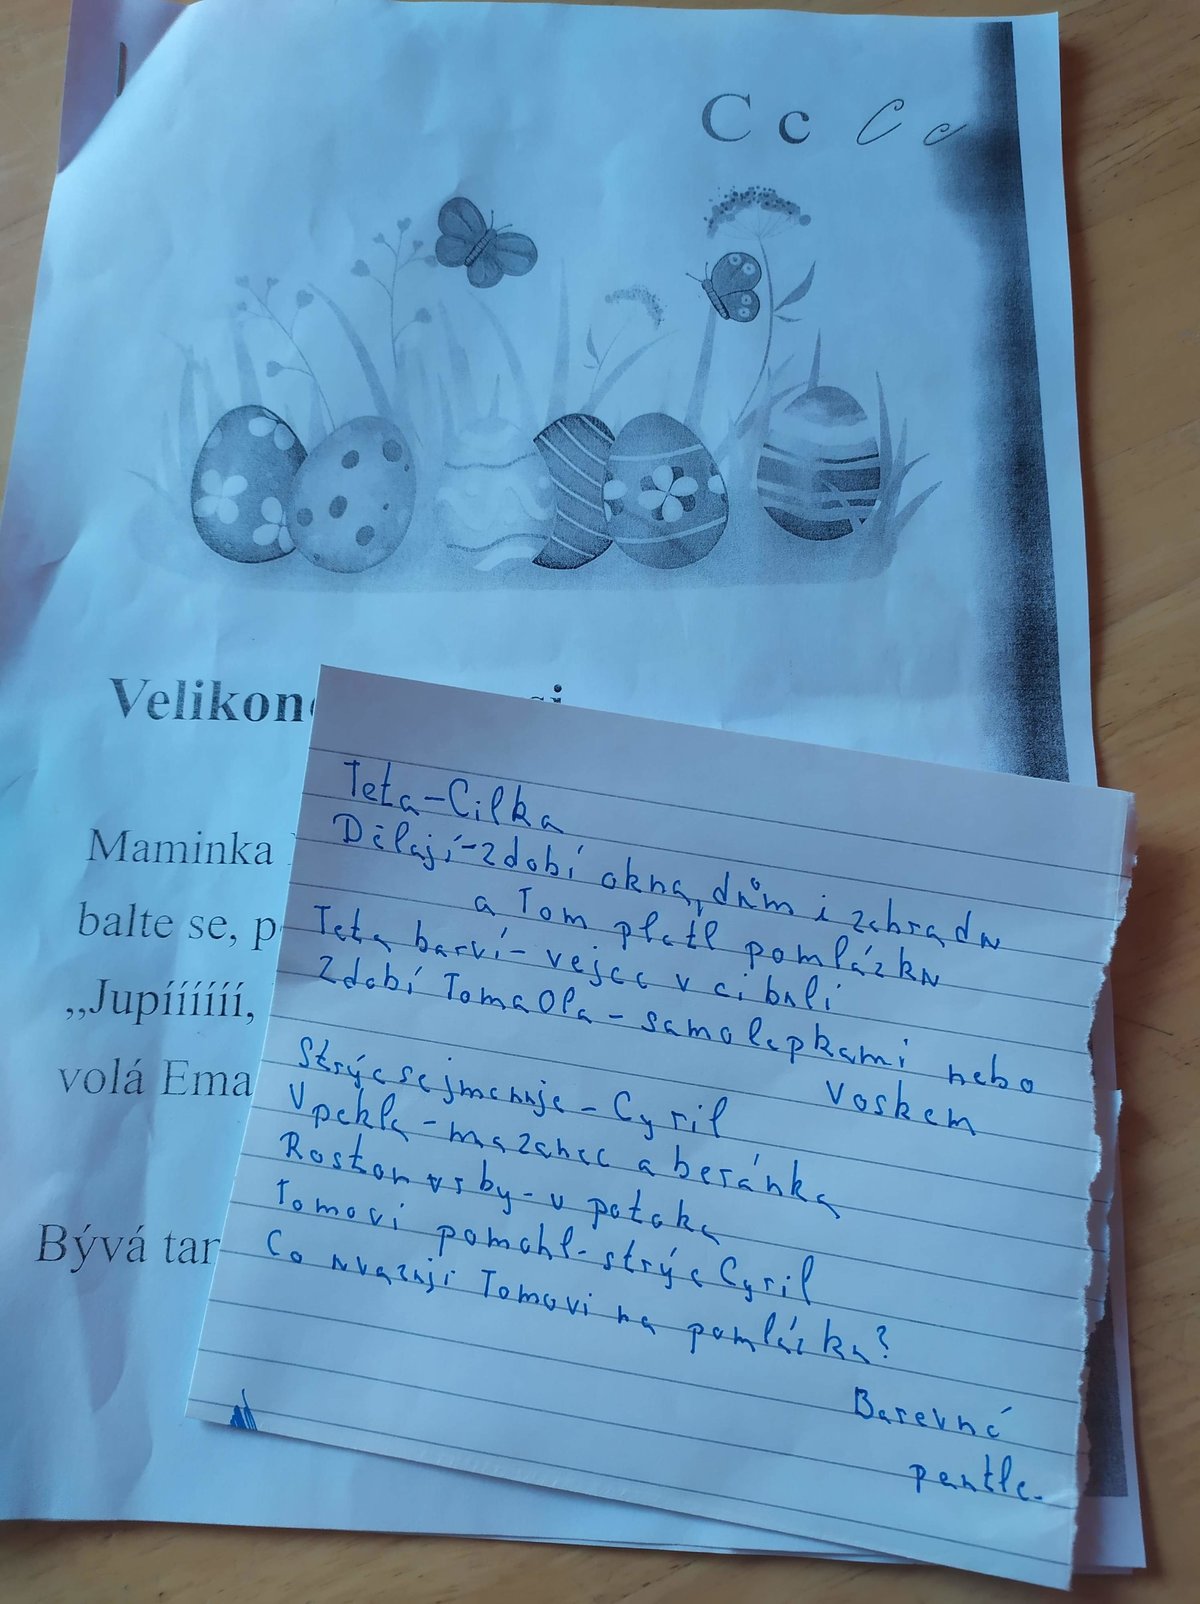 C c C c
Velikon
Maminka
balte se, p
„Jupíííííí,
volá Ema
Bývá tam
Teta-Cilka
Dělají-zdobí okna, dům i zahradu
a Tom pletl pomlázku
Teta barví-vejce v cibuli
Zdobí Toma Ola-samolepkami nebo
voskem
Strýc se jmenuje-Cyril
Upekla-mazanec a beránka
Rostou vrby-u potoka
Tomovi pomohl-strýc Cyril
Co uvazují Tomovi na pomlázku?
Barevné
pentle.